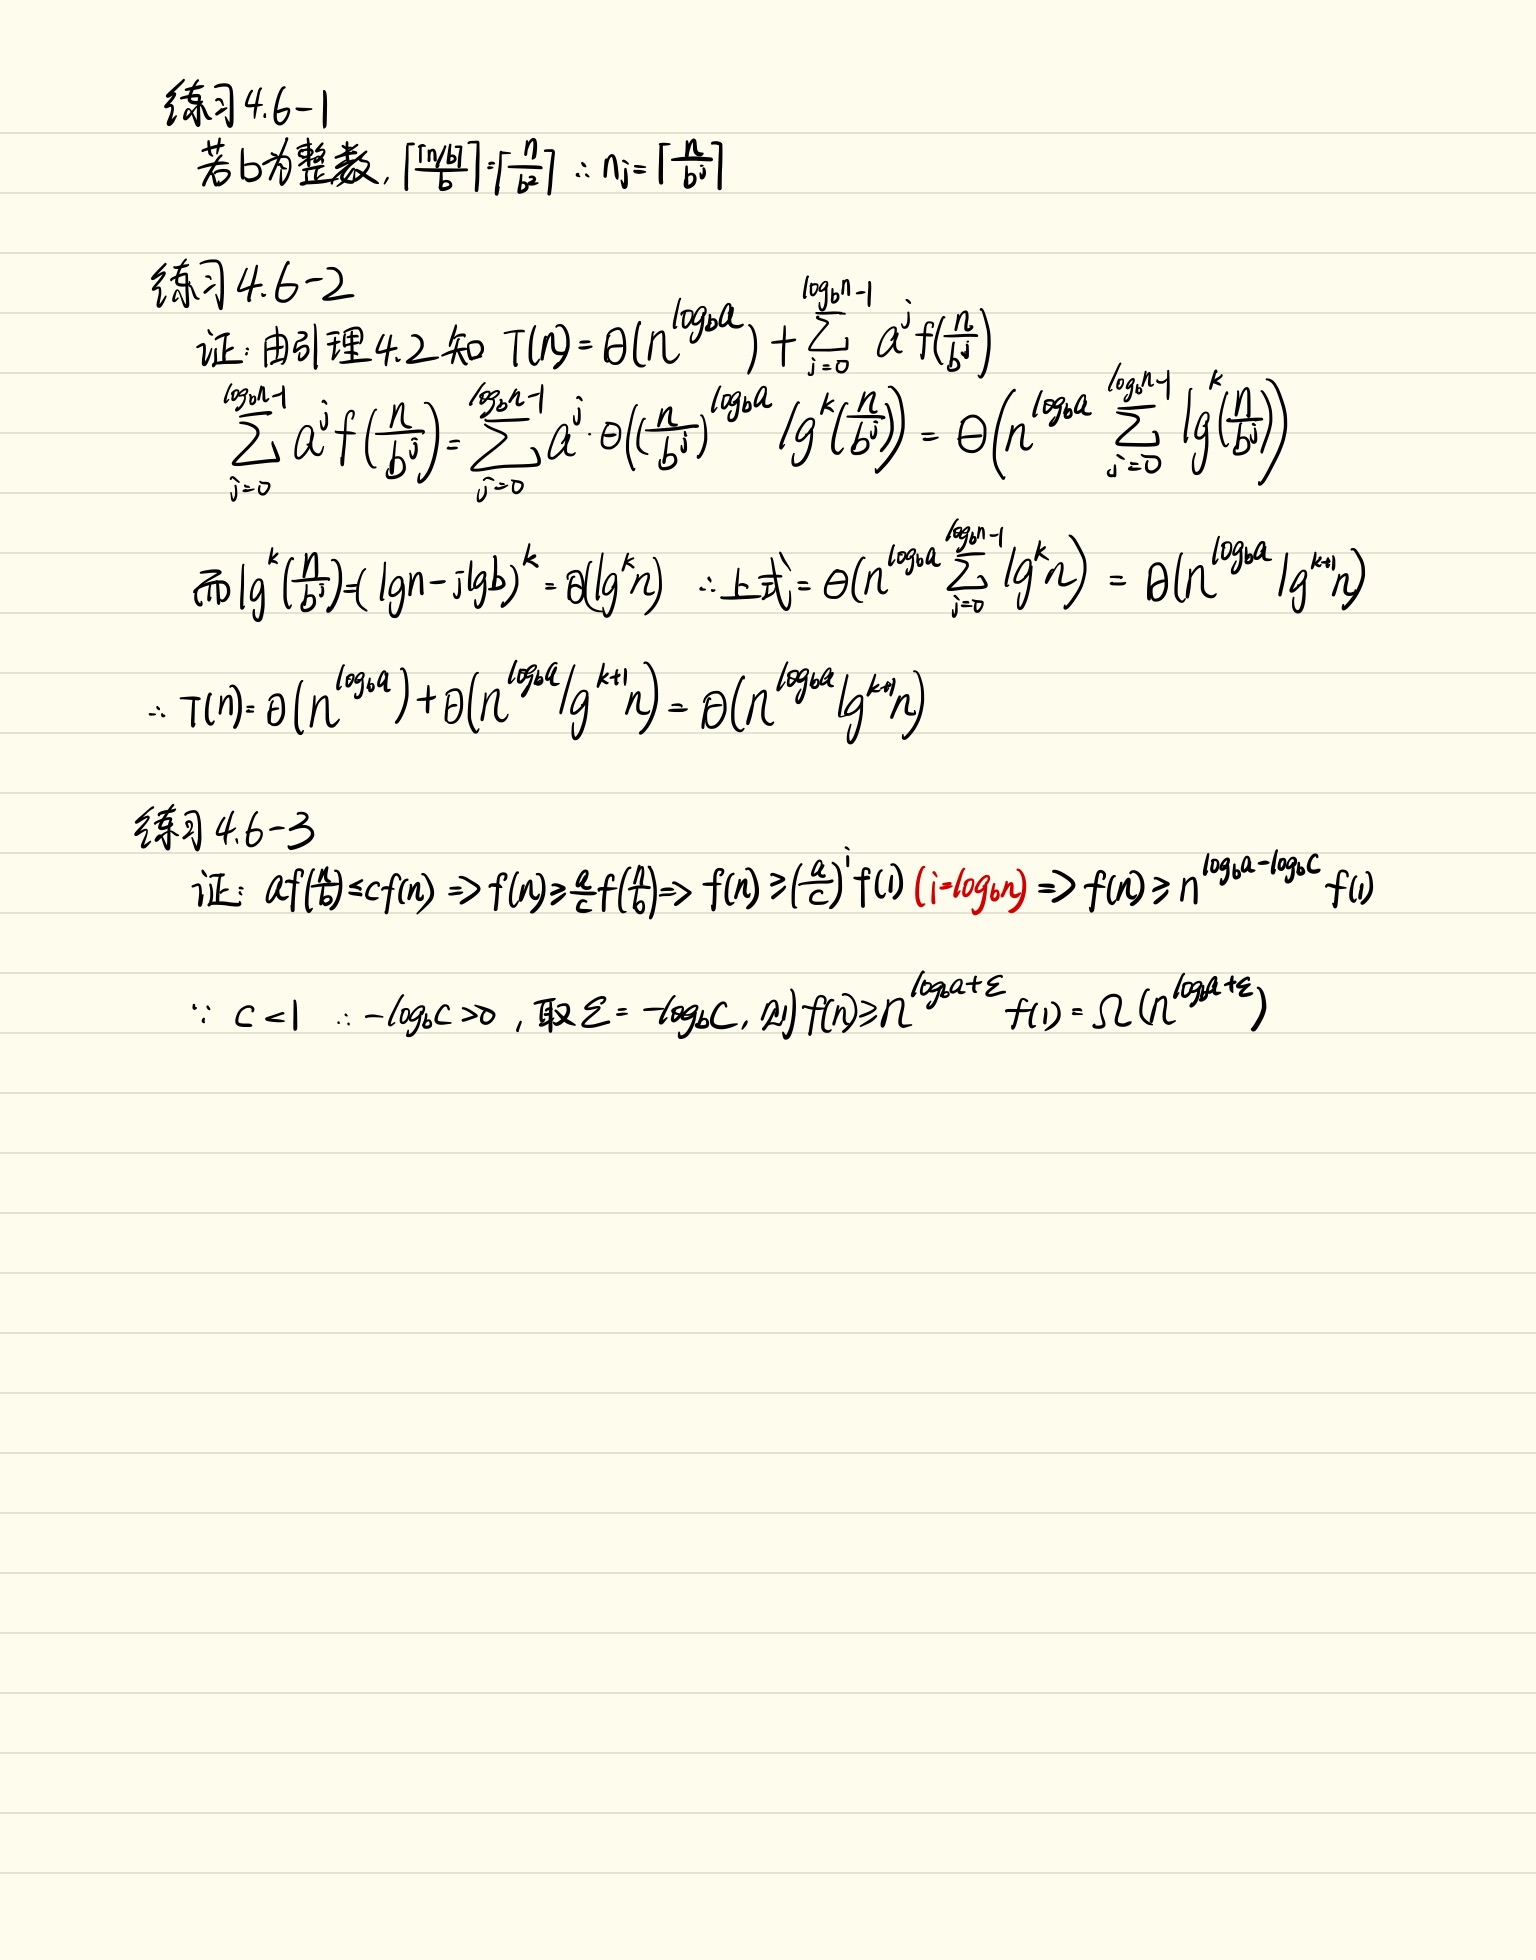 练习4.6-1
若b为整数, ⌈⌈n/b⌉/b⌉=⌈n/b²⌉ ∴ nⱼ=⌈n/bʲ⌉
练习4.6-2
证: 由引理4.2知 T(n)=Θ(n^{log_b a})+∑_{j=0}^{log_b n-1} a^j f(n/b^j)
∑_{j=0}^{log_b n-1} a^j f(n/b^j)=∑_{j=0}^{log_b n-1} a^j·Θ((n/b^j)^{log_b a} lg^k(n/b^j)) = Θ(n^{log_b a} ∑_{j=0}^{log_b n-1} lg^k(n/b^j))
而lg^k(n/b^j)=(lgn-jlgb)^k=Θ(lg^k n) ∴上式=Θ(n^{log_b a} ∑_{j=0}^{log_b n-1} lg^k n) = Θ(n^{log_b a} lg^{k+1} n)
∴ T(n)=Θ(n^{log_b a})+Θ(n^{log_b a} lg^{k+1} n)=Θ(n^{log_b a} lg^{k+1} n)
练习4.6-3
证: af(n/b)≤cf(n) => f(n)≥a/c f(n/b)=> f(n)≥(a/c)^i f(1) (i=log_b n) => f(n)≥n^{log_b a-log_b c} f(1)
∵ c<1 ∴ -log_b c>0, 取ε=-log_b c, 则f(n)≥n^{log_b a+ε} f(1)=Ω(n^{log_b a+ε})